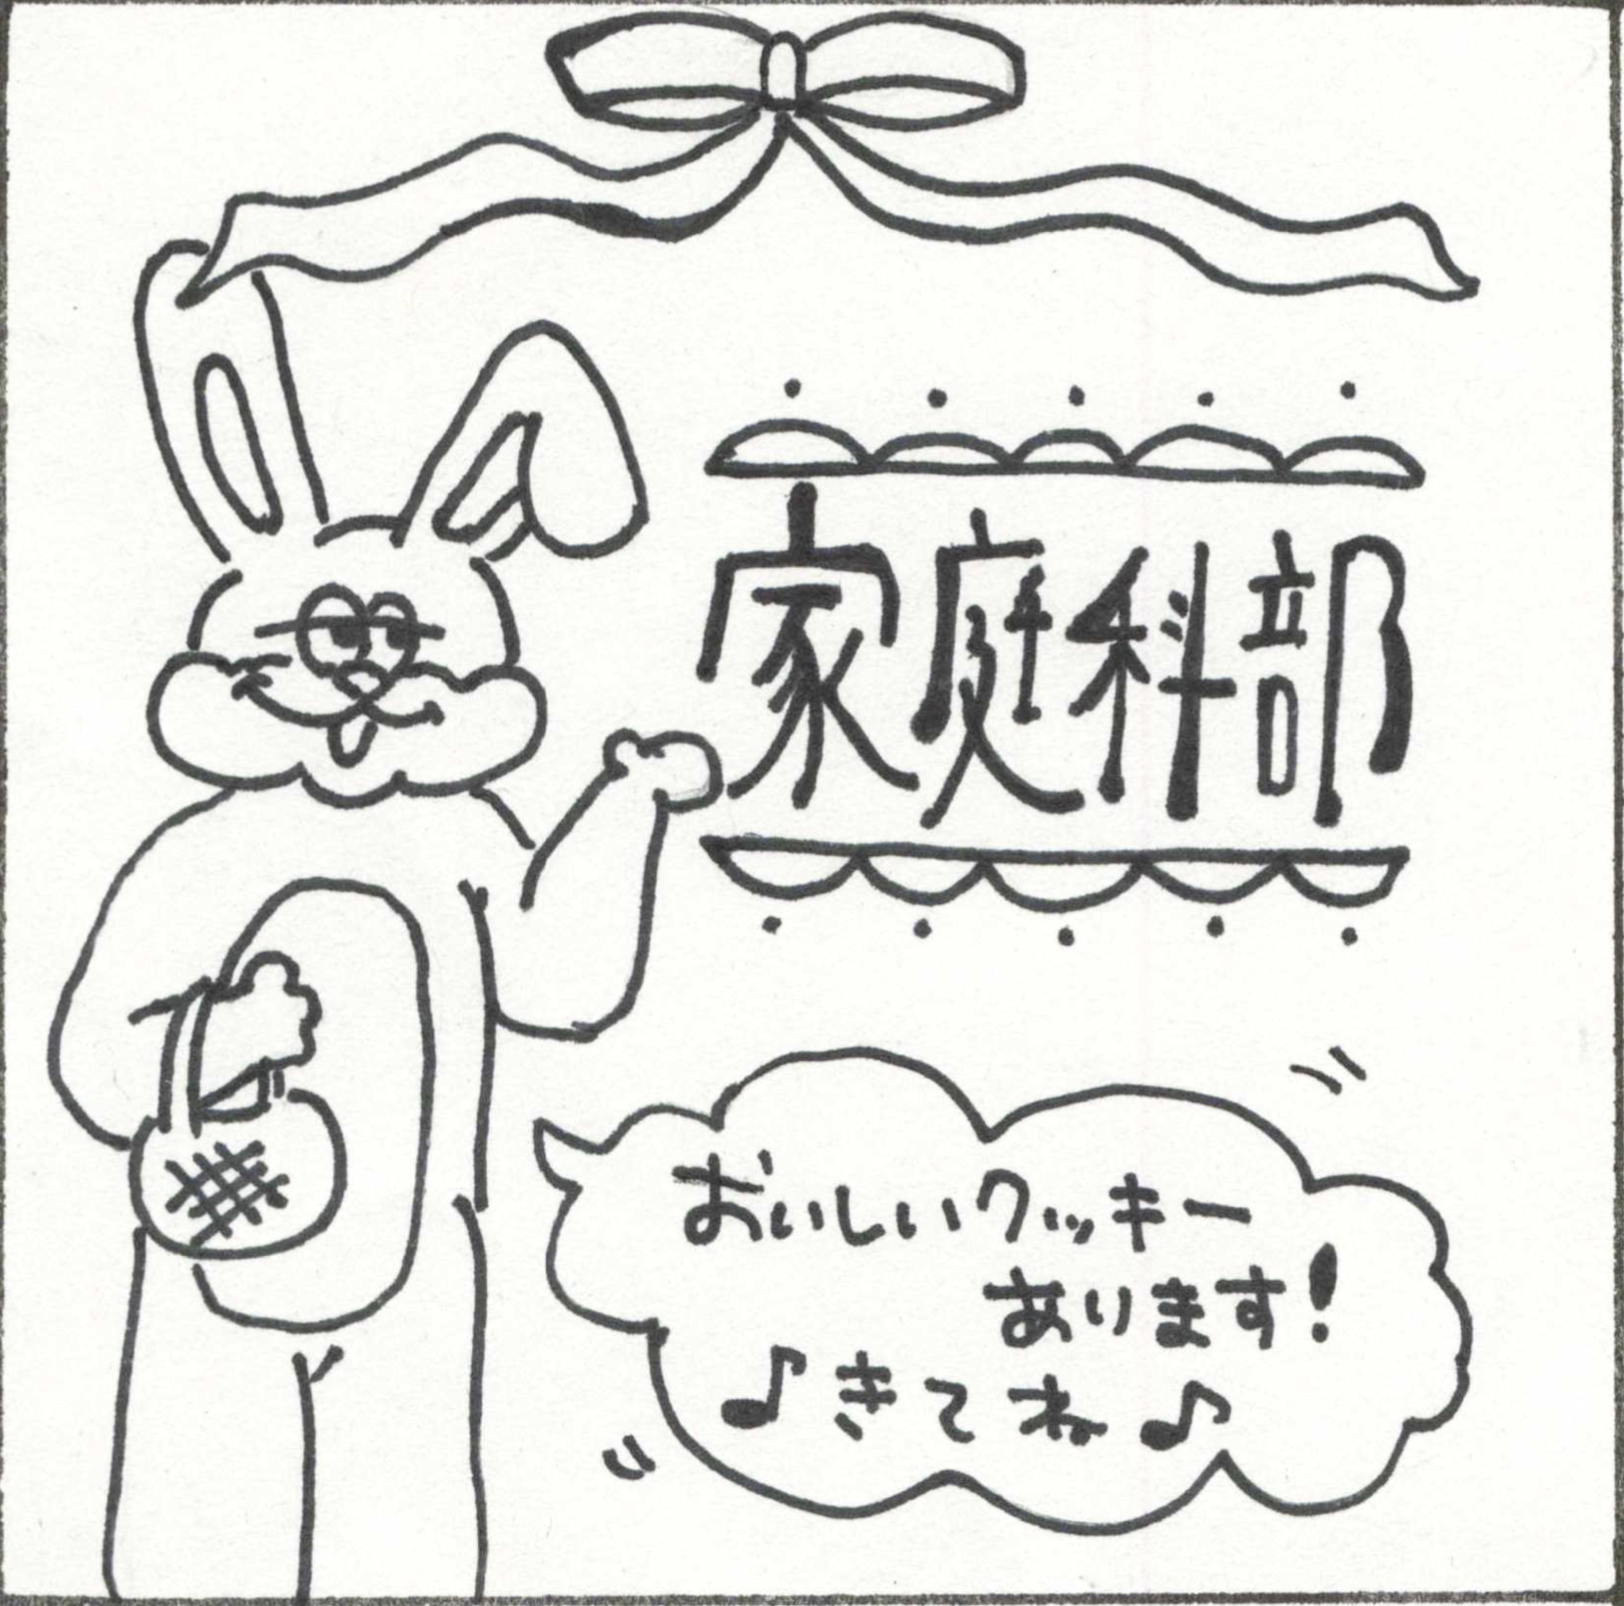 家庭科部
おいしいクッキー
あります!
♪きてね♪